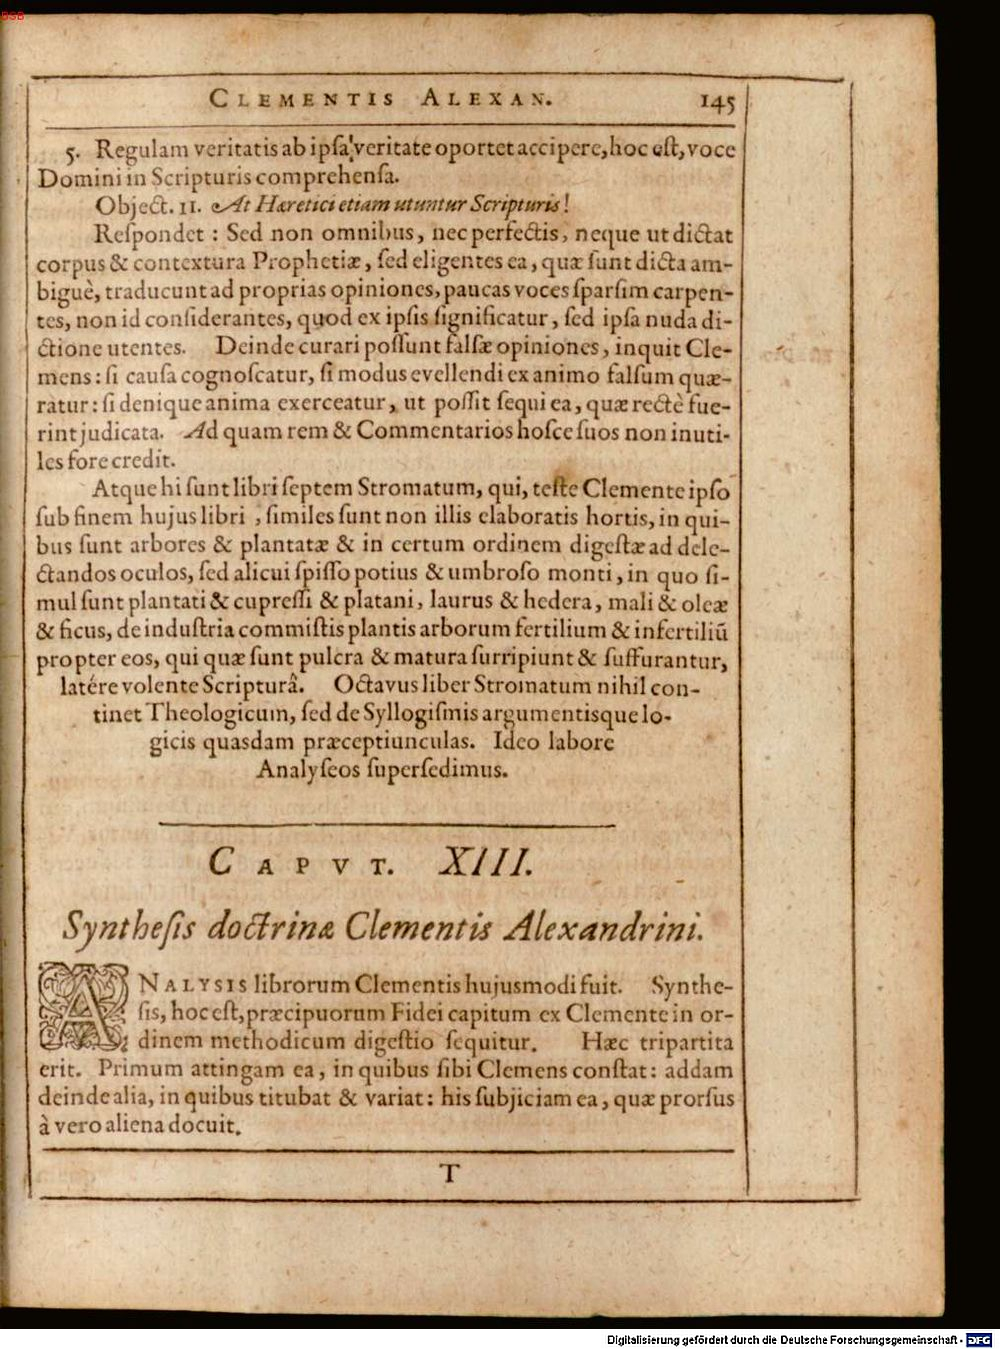 BSB
CLEMENTIS ALEXAN. 145
5. Regulam veritatis ab ipsa veritate oportet accipere, hoc est, voce
Domini in Scripturis comprehensa.
Object. 11. At Hæretici etiam utuntur Scripturis!
Respondet : Sed non omnibus, nec perfectis, neque ut dictat
corpus & contextura Prophetiæ, sed eligentes ea, quæ sunt dicta am-
biguè, traducunt ad proprias opiniones, paucas voces sparsim carpen-
tes, non id considerantes, quod ex ipsis significatur, sed ipsa nuda di-
ctione utentes. Deinde curari possunt falsæ opiniones, inquit Cle-
mens: si causa cognoscatur, si modus evellendi ex animo falsum quæ-
ratur: si denique anima exerceatur, ut possit sequi ea, quæ rectè fue-
rint judicata. Ad quam rem & Commentarios hosce suos non inuti-
les fore credit.
Atque hi sunt libri septem Stromatum, qui, teste Clemente ipso
sub finem hujus libri, similes sunt non illis elaboratis hortis, in qui-
bus sunt arbores & plantatæ & in certum ordinem digestæ ad dele-
ctandos oculos, sed alicui spisso potius & umbroso monti, in quo si-
mul sunt plantati & cupressi & platani, laurus & hedera, mali & oleæ
& ficus, de industria commistis plantis arborum fertilium & infertiliũ
propter eos, qui quæ sunt pulcra & matura surripiunt & suffurantur,
latére volente Scripturâ. Octavus liber Stromatum nihil con-
tinet Theologicum, sed de Syllogismis argumentisque lo-
gicis quasdam præceptiunculas. Ideo labore
Analyseos supersedimus.
CAPVT. XIII.
Synthesis doctrinæ Clementis Alexandrini.
ANALYSIS librorum Clementis hujusmodi fuit. Synthe-
sis, hoc est, præcipuorum Fidei capitum ex Clemente in or-
dinem methodicum digestio sequitur. Hæc tripartita
erit. Primum attingam ea, in quibus sibi Clemens constat: addam
deinde alia, in quibus titubat & variat: his subjiciam ea, quæ prorsus
à vero aliena docuit.
T
Digitalisierung gefördert durch die Deutsche Forschungsgemeinschaft - DFG